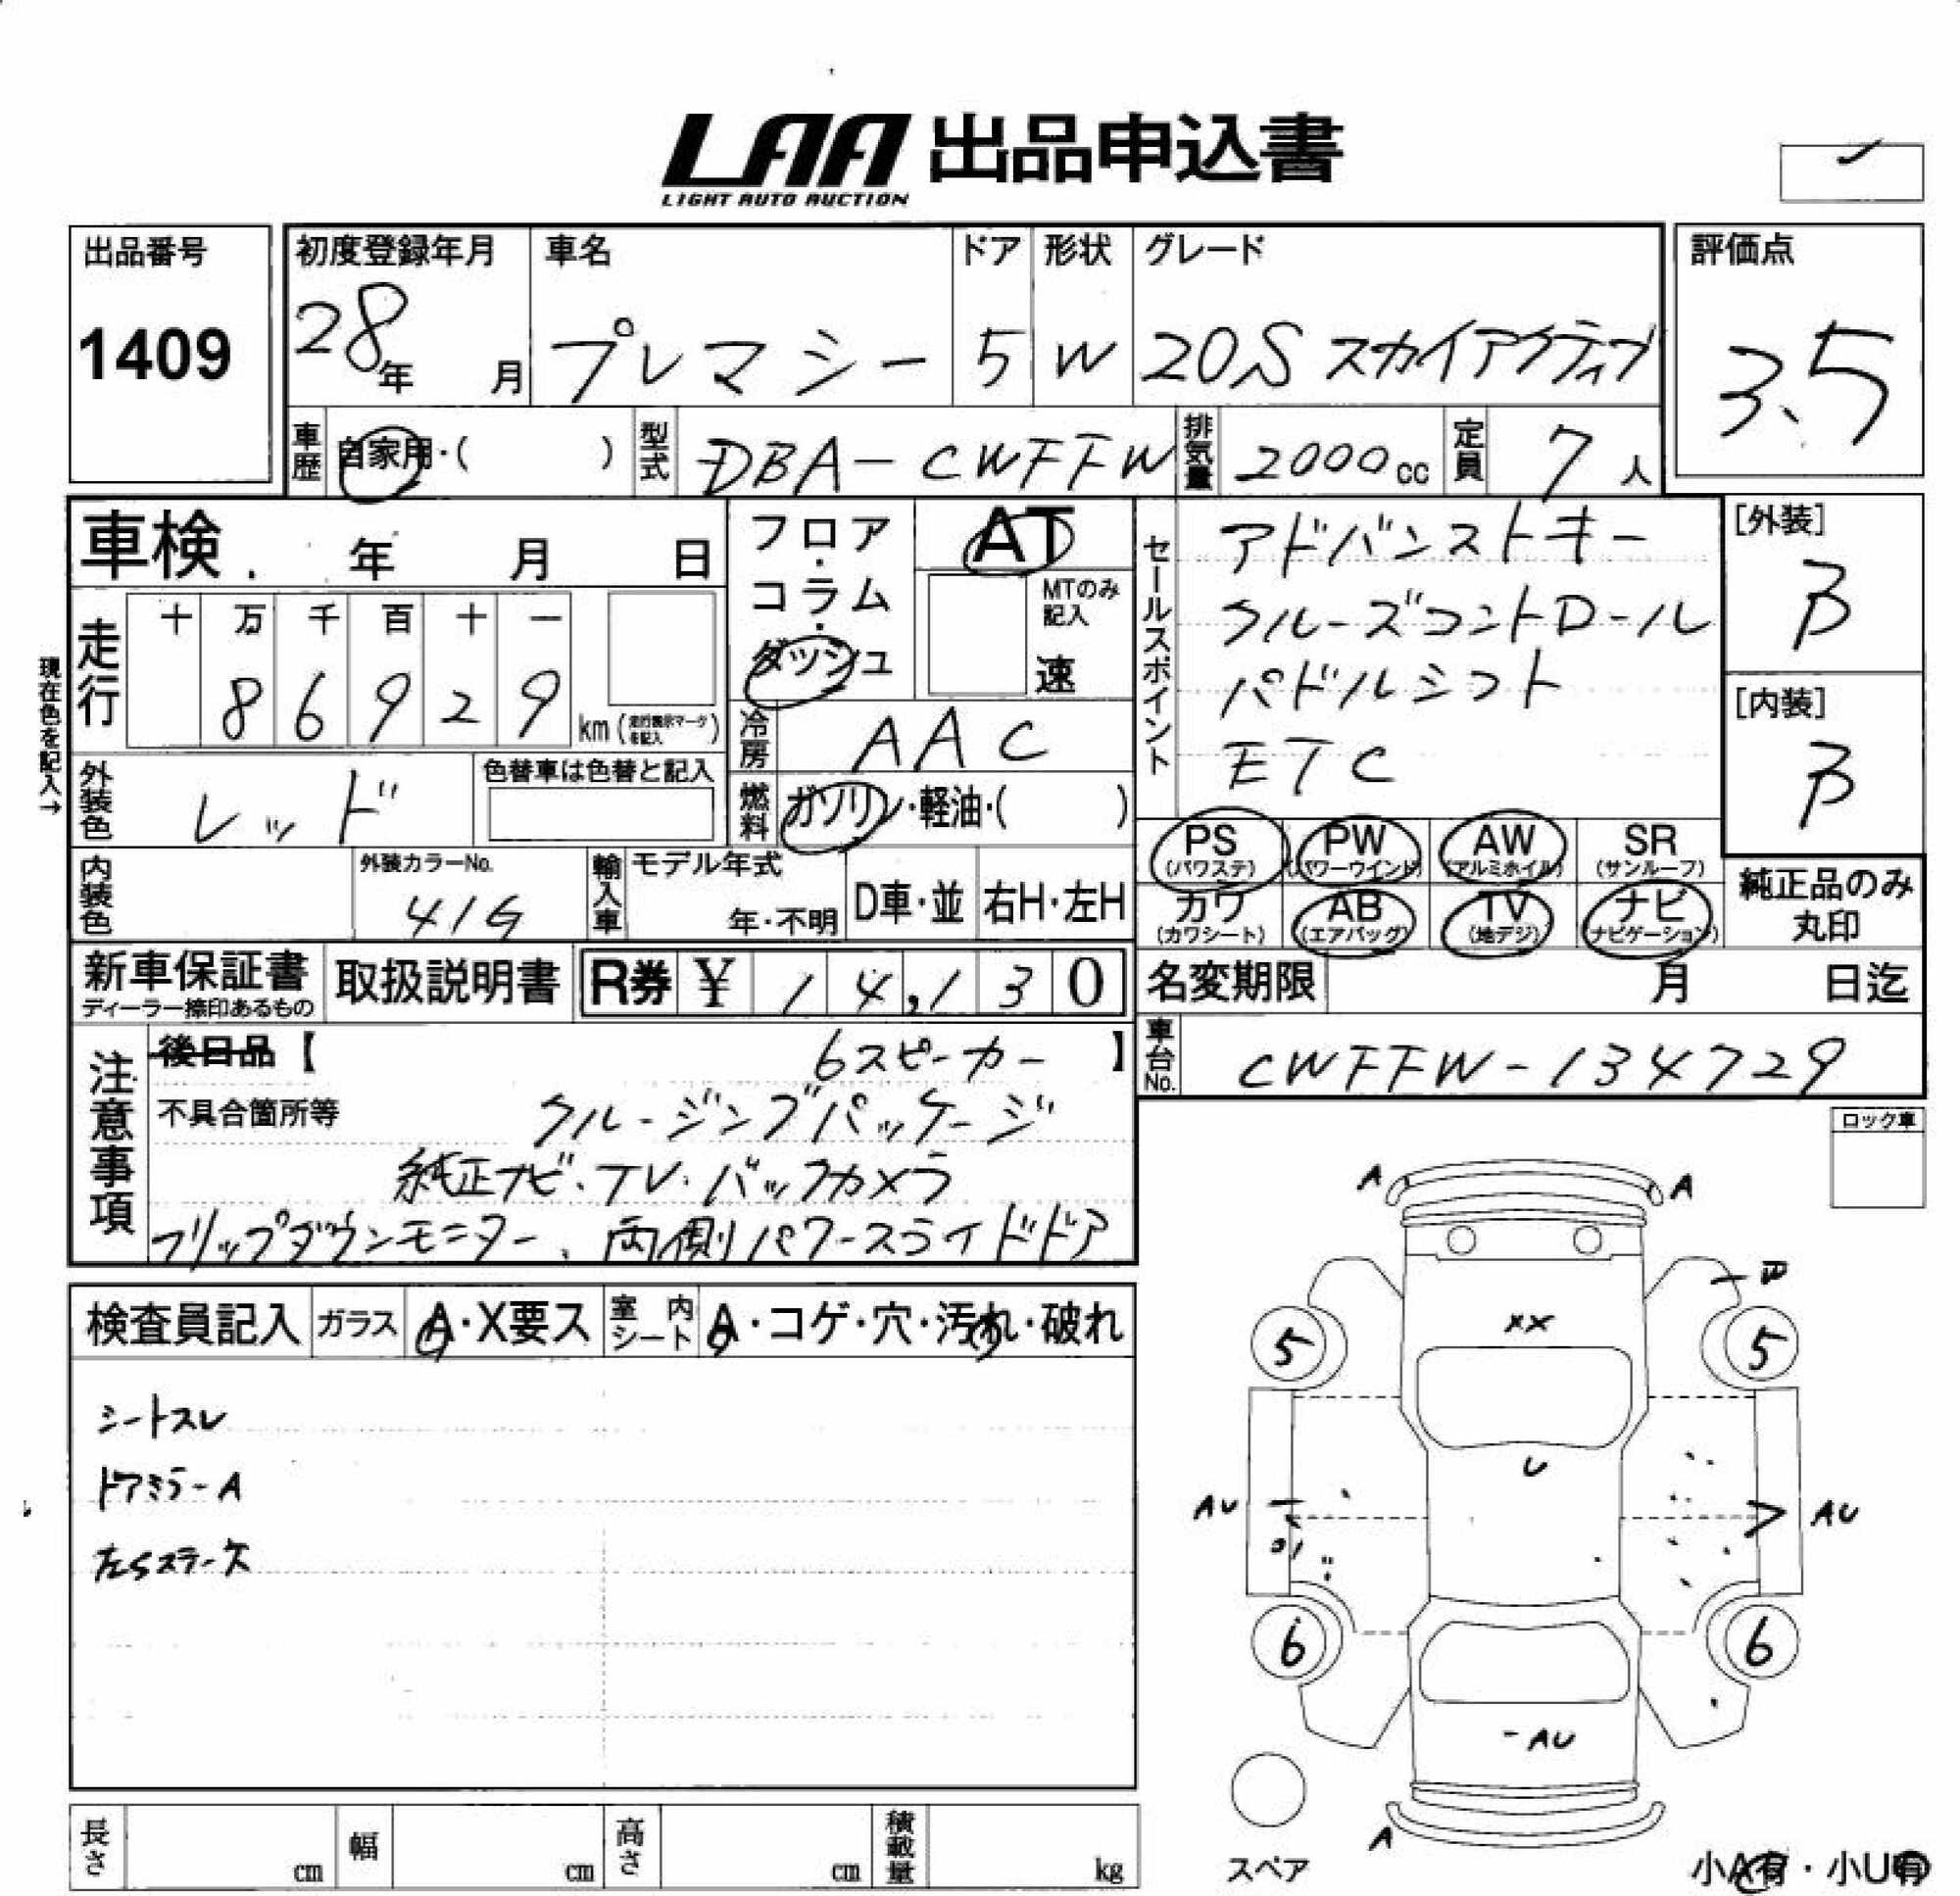 LAA 出品申込書
LIGHT AUTO AUCTION
出品番号
1409
初度登録年月
28年 月
車名
プレマシー
ドア
5
形状
W
グレード
20S スカイアクティブ
評価点
3.5
車歴 自家用・( )
型式 DBA-CWFFW
排気量 2000cc
定員 7人
車検 年 月 日
現在色を記入→
走行
十 万 千 百 十 一
8 6 9 2 9 km(走行表示マークを記入)
フロア・コラム・ダッシュ
AT
MTのみ記入
速
冷房 AAC
燃料 ガソリン・軽油・( )
セールスポイント
アドバンストキー
クルーズコントロール
パドルシフト
ETC
[外装]
B
[内装]
B
外装色 レッド
色替車は色替と記入
内装色
外装カラーNo.
41G
輸入車
モデル年式
年・不明
D車・並
右H・左H
PS (パワステ)
PW (パワーウインド)
AW (アルミホイル)
SR (サンルーフ)
カワ (カワシート)
AB (エアバッグ)
TV (地デジ)
ナビ (ナビゲーション)
純正品のみ
丸印
新車保証書
ディーラー捺印あるもの
取扱説明書
R券 ¥ 14,130
名変期限 月 日迄
車台No. CWFFW-134729
注意事項
後日品【 6スピーカー 】
不具合箇所等 クルージングパッケージ
純正ナビ・TV・バックカメラ
フリップダウンモニター、両側パワースライドドア
ロック車
検査員記入
ガラス A・X要ス
室内シート A・コゲ・穴・汚れ・破れ
シートスレ
ドアミラーA
A
A
W
XX
5
5
U
AU
AU
6
6
AU
A
スペア
小A有・小U有
長さ cm
幅 cm
高さ cm
積載量 kg